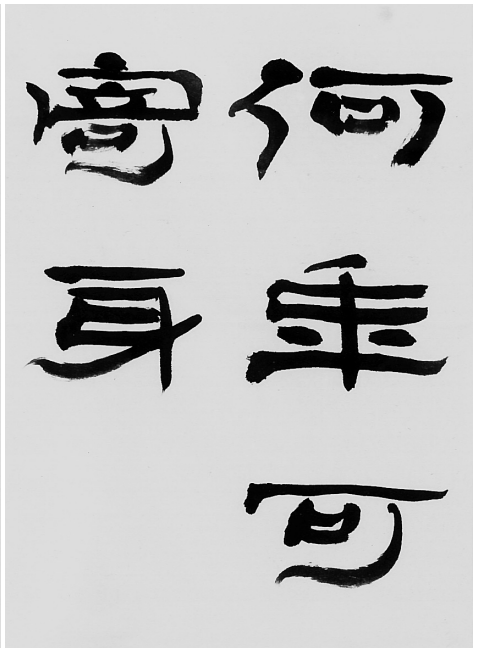 何年可
寄身